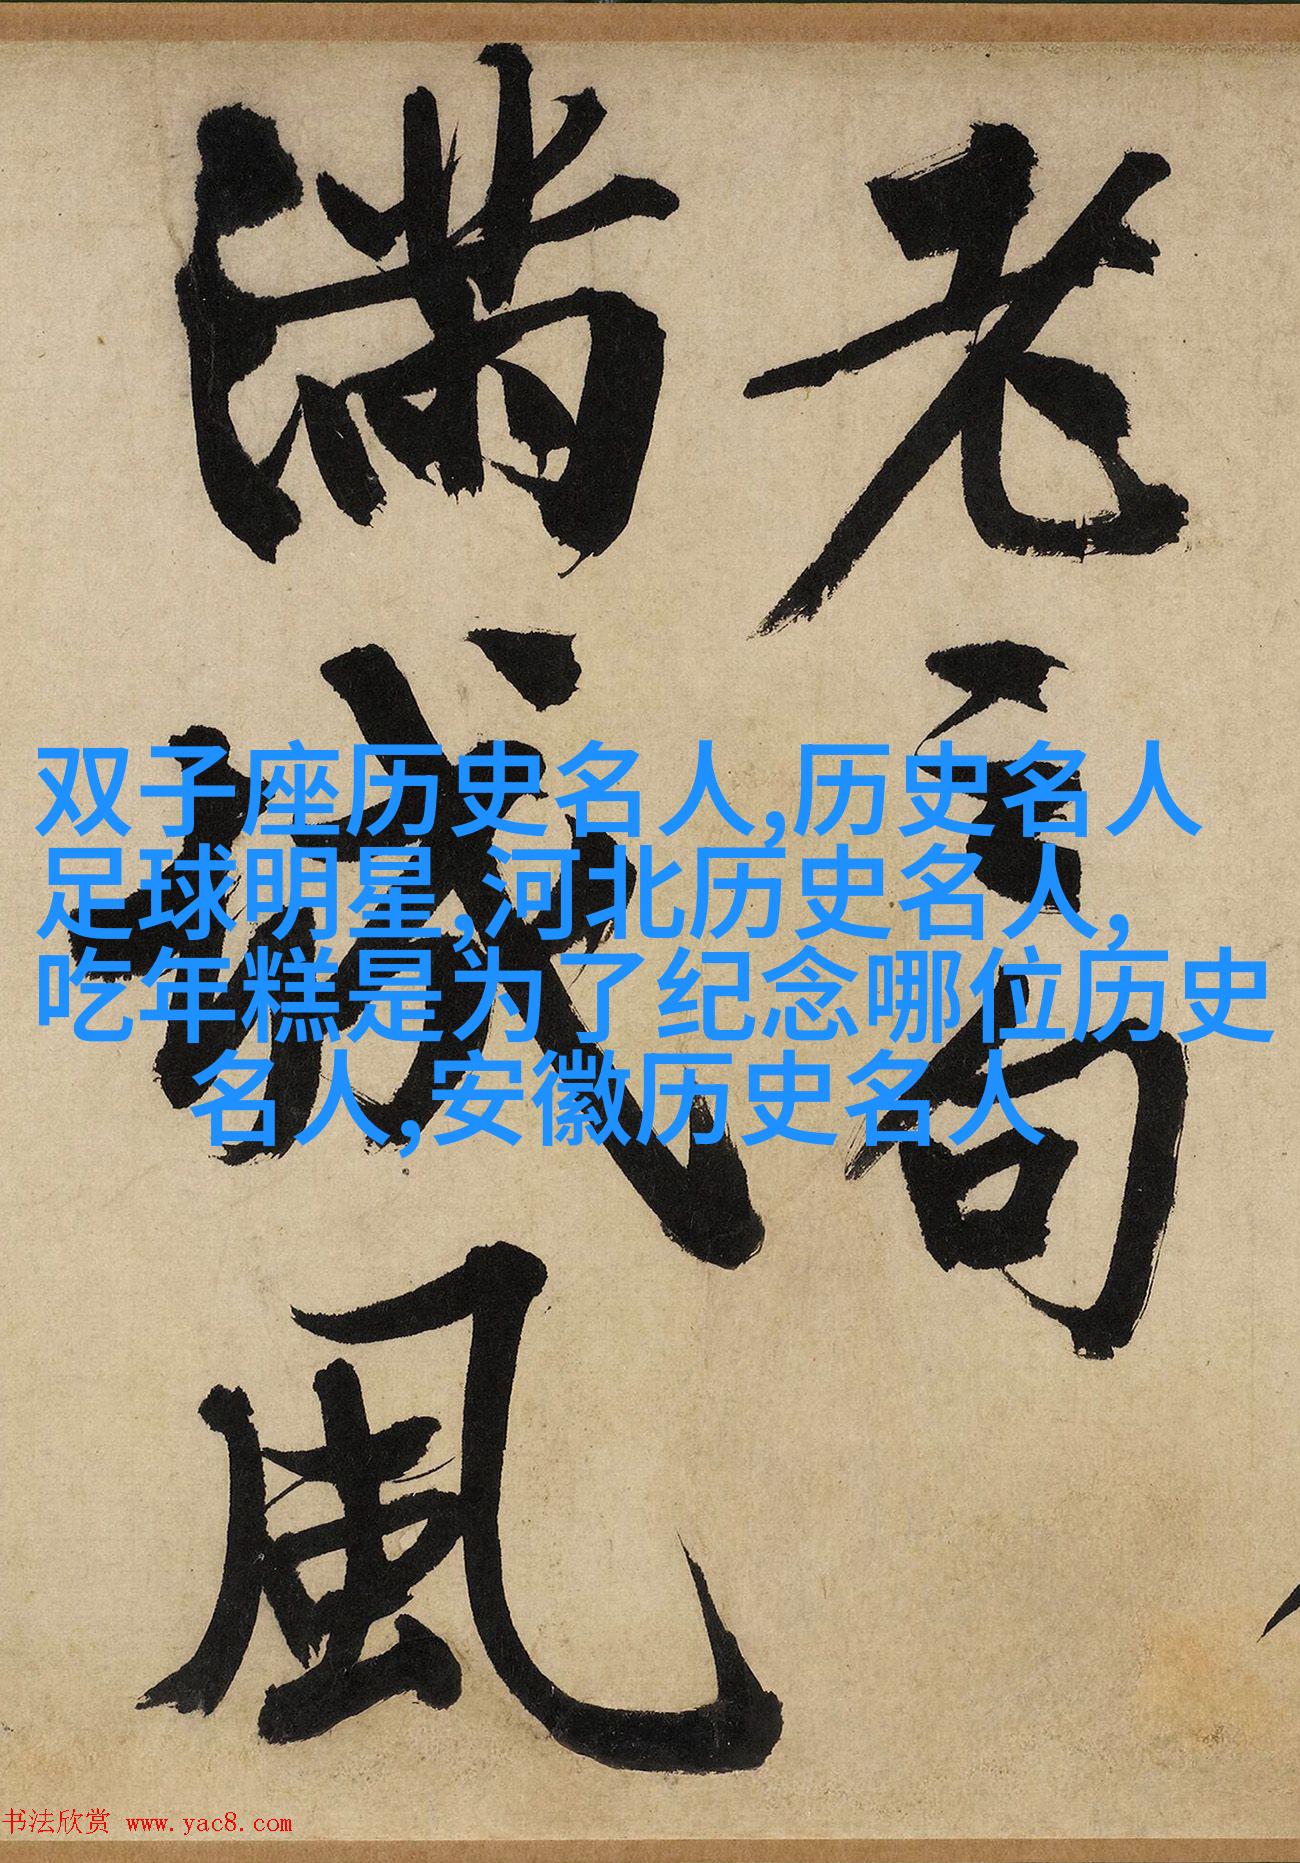 老句
滿城風
双子座历史名人,历史名人
足球明星,河北历史名人,
吃年糕是为了纪念哪位历史
名人,安徽历史名人
书法欣赏 www.yac8.com